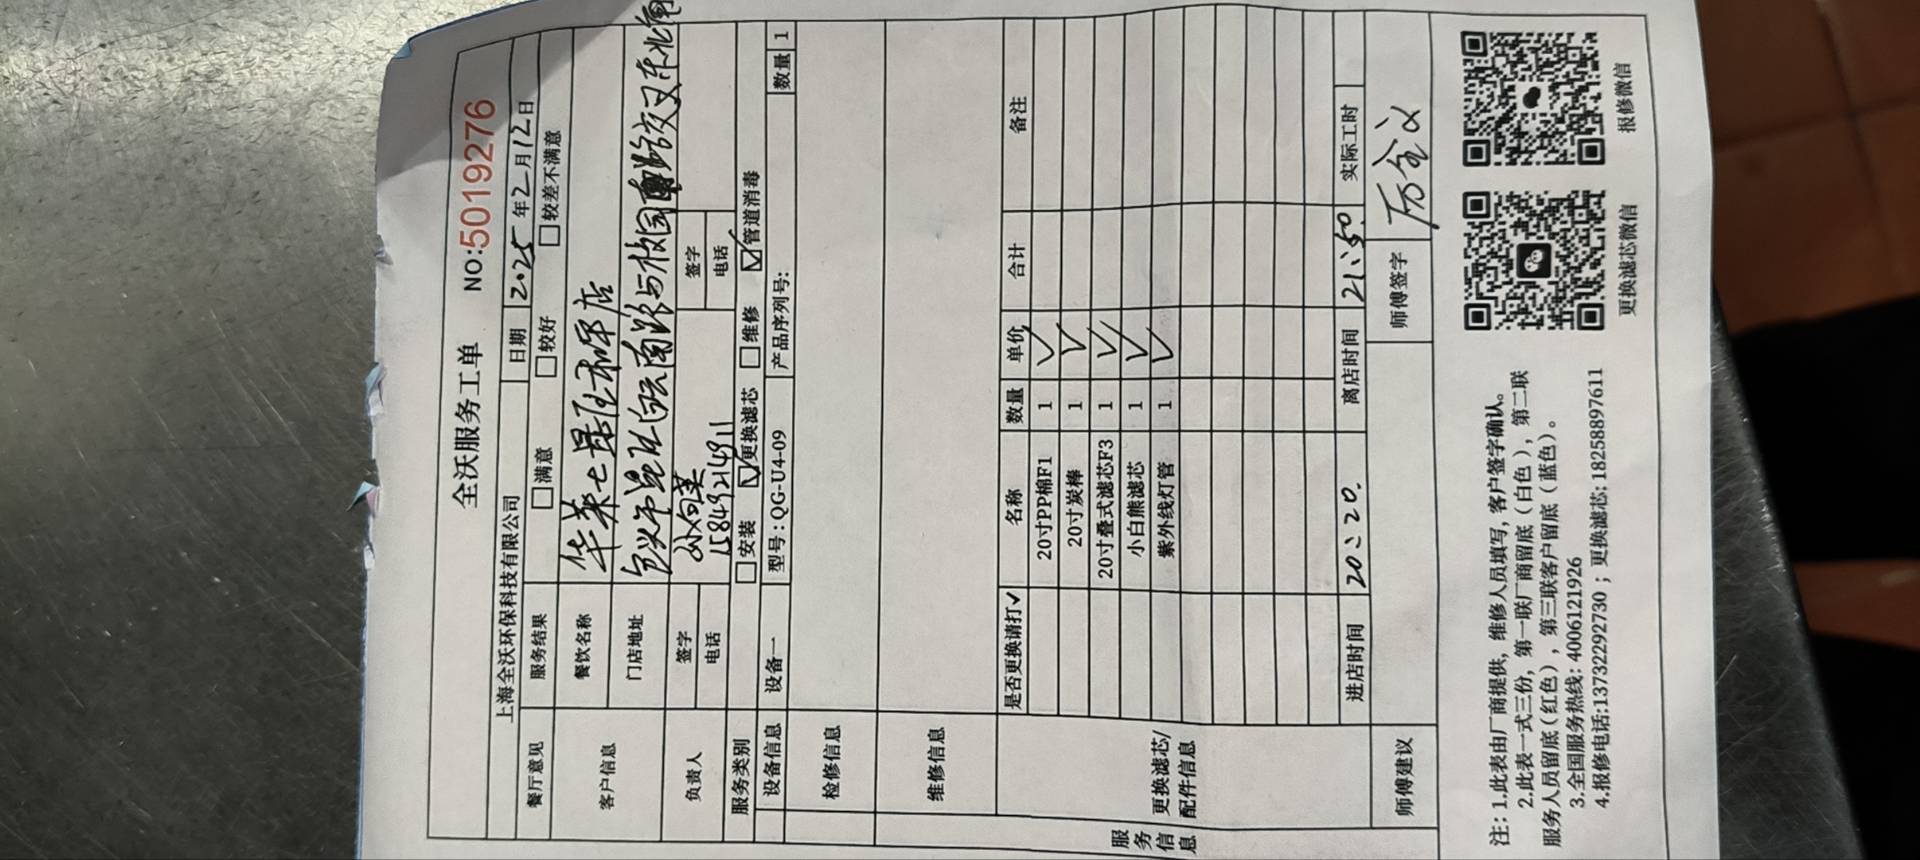 全沃服务工单 NO:5019276
上海全沃环保科技有限公司 日期 2025年2月12日
餐厅意见 服务结果 □满意 □较好 □较差不满意
客户信息 餐饮名称 华莱士昆区和平店
门店地址 包头市昆区白云南路与校园南路交叉东北角
负责人 签字 签字
电话 15849214911 电话
服务类别 □安装 ☑更换滤芯 □维修 ☑管道消毒
设备信息 设备一 型号:QG-U4-09 产品序列号: 数量 1
检修信息
维修信息
服务信息
更换滤芯/配件信息
是否更换请打✓ 名称 数量 单价 合计 备注
20寸PP棉F1 1 ✓
20寸炭棒 1 ✓
20寸叠式滤芯F3 1 ✓
小白熊滤芯 1 ✓
紫外线灯管 1 ✓
进店时间 20:20 离店时间 21:50 实际工时
师傅建议 师傅签字
注: 1.此表由厂商提供, 维修人员填写, 客户签字确认。
2.此表一式三份, 第一联厂商留底（白色）, 第二联
服务人员留底（红色）, 第三联客户留底（蓝色）。
3.全国服务热线: 4006121926
4.报修电话:13732292730 ; 更换滤芯: 18258897611
更换滤芯微信 报修微信